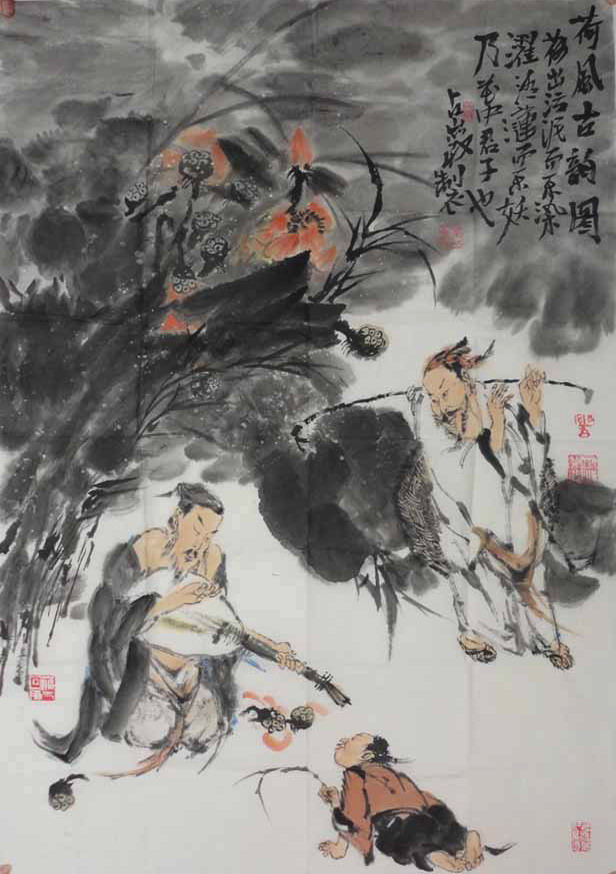 荷風古韵图
荷出污泥而不染
濯清漣而不妖
乃花中君子也